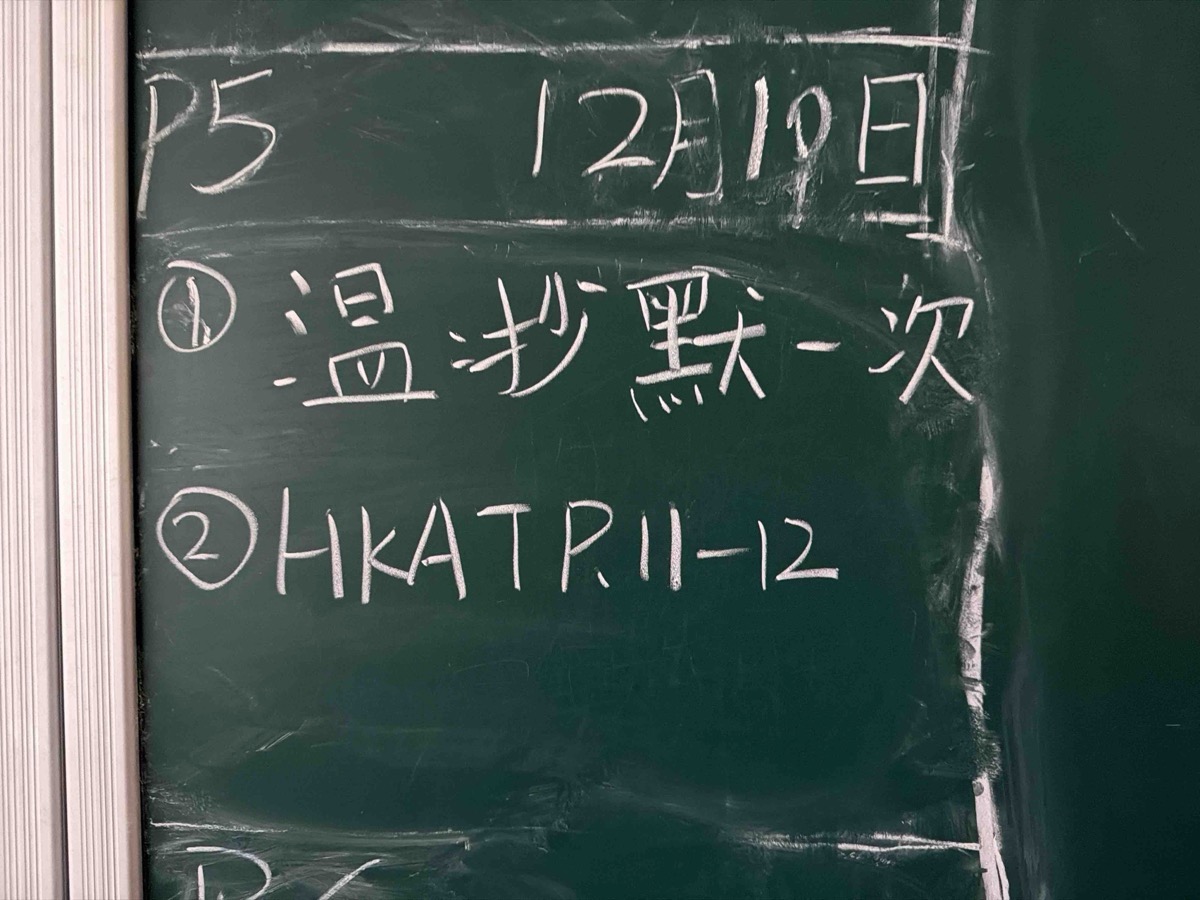 P5 12月10日
① 溫抄默一次
② HKAT P.11-12